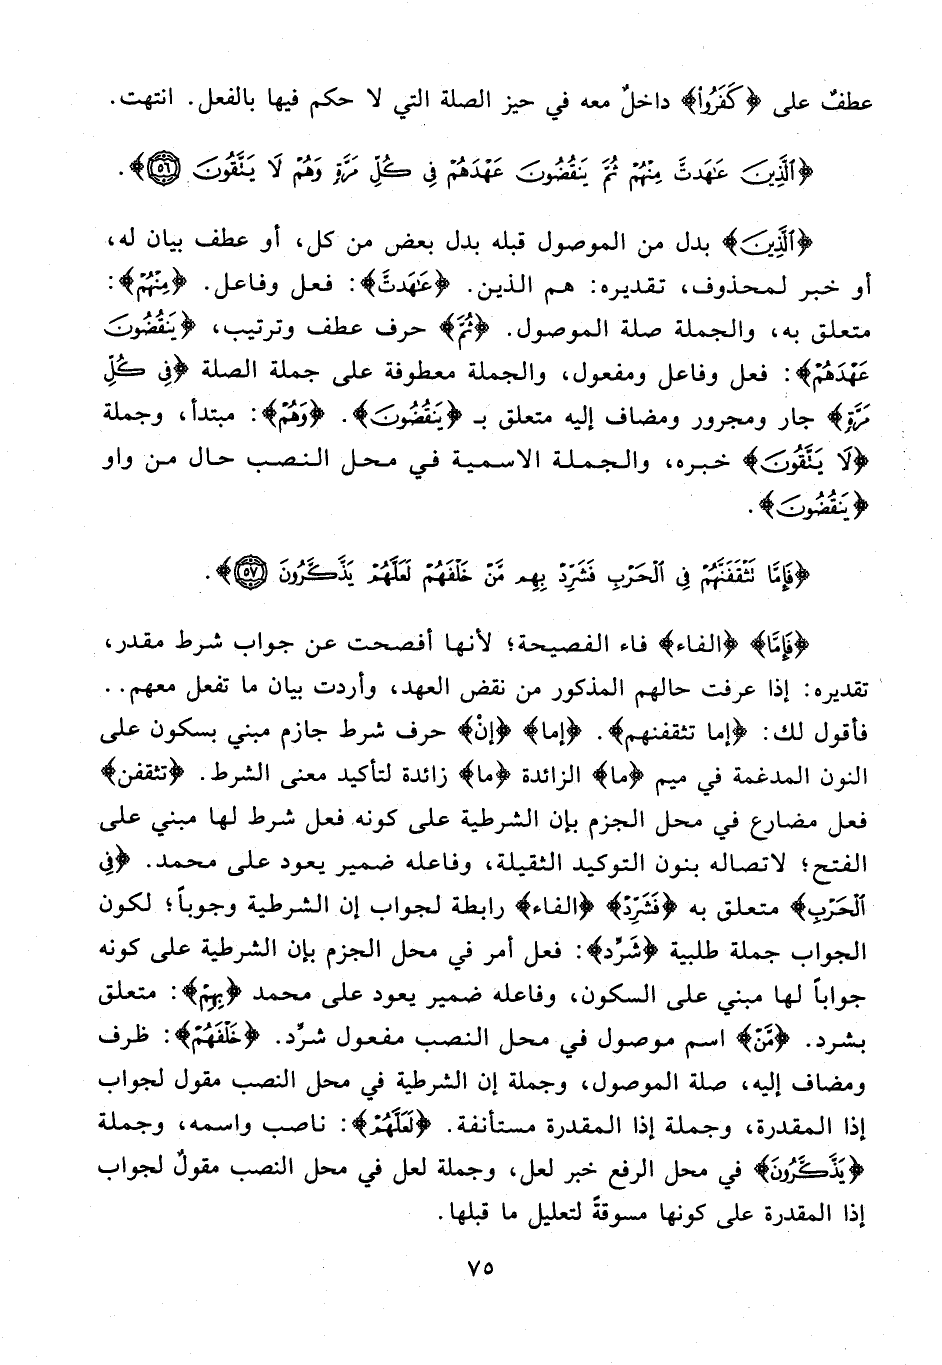 عطفٌ على ﴿كَفَرُوا۟﴾ داخلٌ معه في حيز الصلة التي لا حكم فيها بالفعل. انتهت.
﴿ٱلَّذِينَ عَٰهَدتَّ مِنْهُمْ ثُمَّ يَنقُضُونَ عَهْدَهُمْ فِى كُلِّ مَرَّةٍ وَهُمْ لَا يَتَّقُونَ ٥٦﴾.
﴿ٱلَّذِينَ﴾ بدل من الموصول قبله بدل بعض من كل، أو عطف بيان له،
أو خبر لمحذوف، تقديره: هم الذين. ﴿عَٰهَدتَّ﴾: فعل وفاعل. ﴿مِنْهُمْ﴾:
متعلق به، والجملة صلة الموصول. ﴿ثُمَّ﴾ حرف عطف وترتيب، ﴿يَنقُضُونَ
عَهْدَهُمْ﴾: فعل وفاعل ومفعول، والجملة معطوفة على جملة الصلة ﴿فِى كُلِّ
مَرَّةٍ﴾ جار ومجرور ومضاف إليه متعلق بـ ﴿يَنقُضُونَ﴾. ﴿وَهُمْ﴾: مبتدأ، وجملة
﴿لَا يَتَّقُونَ﴾ خبره، والجملة الاسمية في محل النصب حال من واو
﴿يَنقُضُونَ﴾.
﴿فَإِمَّا تَثْقَفَنَّهُمْ فِى ٱلْحَرْبِ فَشَرِّدْ بِهِم مَّنْ خَلْفَهُمْ لَعَلَّهُمْ يَذَّكَّرُونَ ٥٧﴾.
﴿فَإِمَّا﴾ ﴿الفاء﴾ فاء الفصيحة؛ لأنها أفصحت عن جواب شرط مقدر،
تقديره: إذا عرفت حالهم المذكور من نقض العهد، وأردت بيان ما تفعل معهم..
فأقول لك: ﴿إما تثقفنهم﴾. ﴿إما﴾ ﴿إنْ﴾ حرف شرط جازم مبني بسكون على
النون المدغمة في ميم ﴿ما﴾ الزائدة ﴿ما﴾ زائدة لتأكيد معنى الشرط. ﴿تثقفن﴾
فعل مضارع في محل الجزم بإن الشرطية على كونه فعل شرط لها مبني على
الفتح؛ لاتصاله بنون التوكيد الثقيلة، وفاعله ضمير يعود على محمد. ﴿فِى
ٱلْحَرْبِ﴾ متعلق به ﴿فَشَرِّدْ﴾ ﴿الفاء﴾ رابطة لجواب إن الشرطية وجوباً؛ لكون
الجواب جملة طلبية ﴿شَرِّد﴾: فعل أمر في محل الجزم بإن الشرطية على كونه
جواباً لها مبني على السكون، وفاعله ضمير يعود على محمد ﴿بِهِمْ﴾: متعلق
بشرد. ﴿مَّنْ﴾ اسم موصول في محل النصب مفعول شرِّد. ﴿خَلْفَهُمْ﴾: ظرف
ومضاف إليه، صلة الموصول، وجملة إن الشرطية في محل النصب مقول لجواب
إذا المقدرة، وجملة إذا المقدرة مستأنفة. ﴿لَعَلَّهُمْ﴾: ناصب واسمه، وجملة
﴿يَذَّكَّرُونَ﴾ في محل الرفع خبر لعل، وجملة لعل في محل النصب مقولٌ لجواب
إذا المقدرة على كونها مسوقةً لتعليل ما قبلها.
٧٥